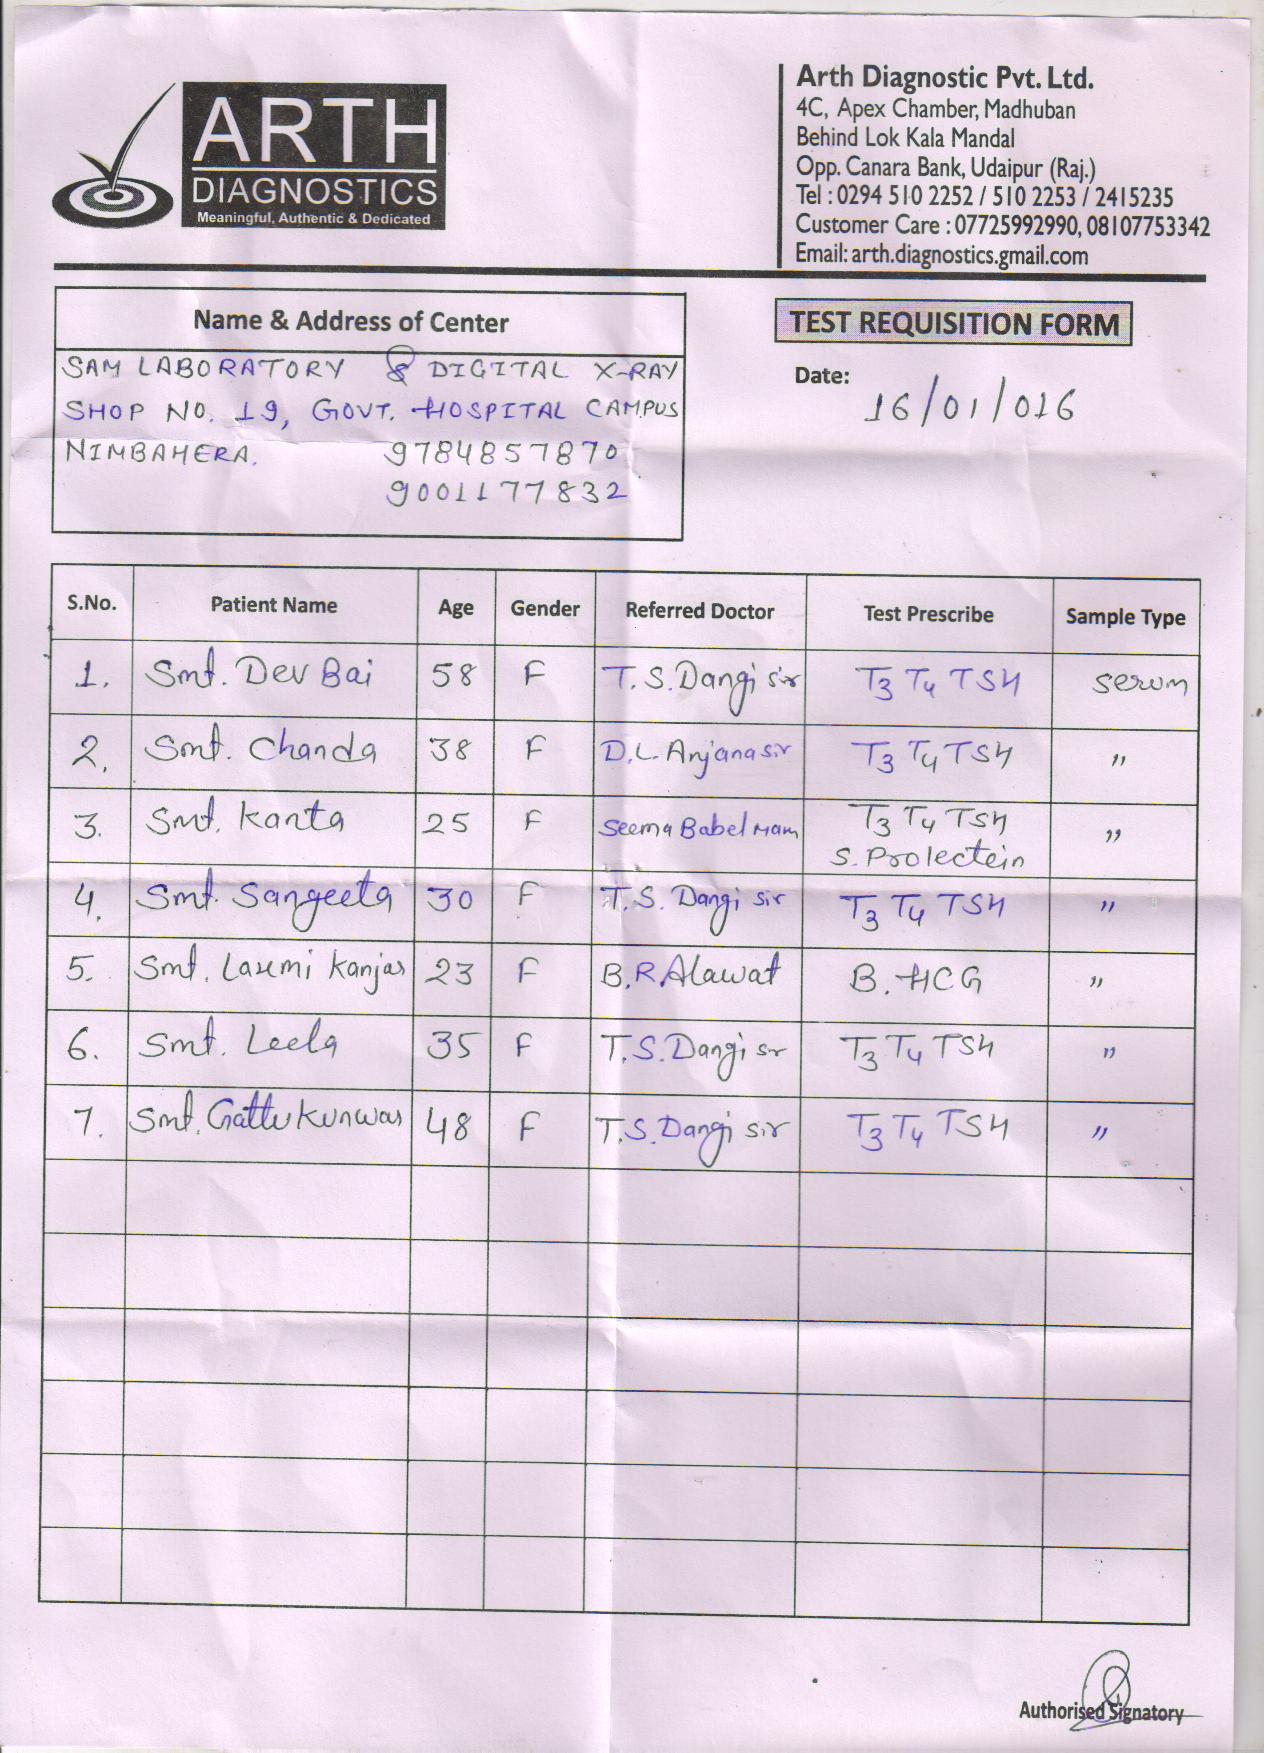 ARTH
DIAGNOSTICS
Meaningful, Authentic & Dedicated
Arth Diagnostic Pvt. Ltd.
4C, Apex Chamber, Madhuban
Behind Lok Kala Mandal
Opp. Canara Bank, Udaipur (Raj.)
Tel : 0294 510 2252 / 510 2253 / 2415235
Customer Care : 07725992990, 08107753342
Email: arth.diagnostics.gmail.com
Name & Address of Center
SAM LABORATORY & DIGITAL X-RAY
SHOP NO. 19, GOVT. HOSPITAL CAMPUS
NIMBAHERA. 9784857870
9001177832
TEST REQUISITION FORM
Date: 16/01/016
S.No. Patient Name Age Gender Referred Doctor Test Prescribe Sample Type
1. Smt. Dev Bai 58 F T.S. Dangi sir T3 T4 TSH Serum
2. Smt. Chanda 38 F D.L. Anjana sir T3 T4 TSH "
3. Smt. Kanta 25 F Seema Babel Mam T3 T4 TSH "
S. Prolectein
4. Smt. Sangeeta 30 F T.S. Dangi sir T3 T4 TSH "
5. Smt. Laxmi Kanjar 23 F B.R Alawat B. HCG "
6. Smt. Leela 35 F T.S. Dangi sr T3 T4 TSH "
7. Smt. Gattu Kunwar 48 F T.S. Dangi sir T3 T4 TSH "
Authorised Signatory